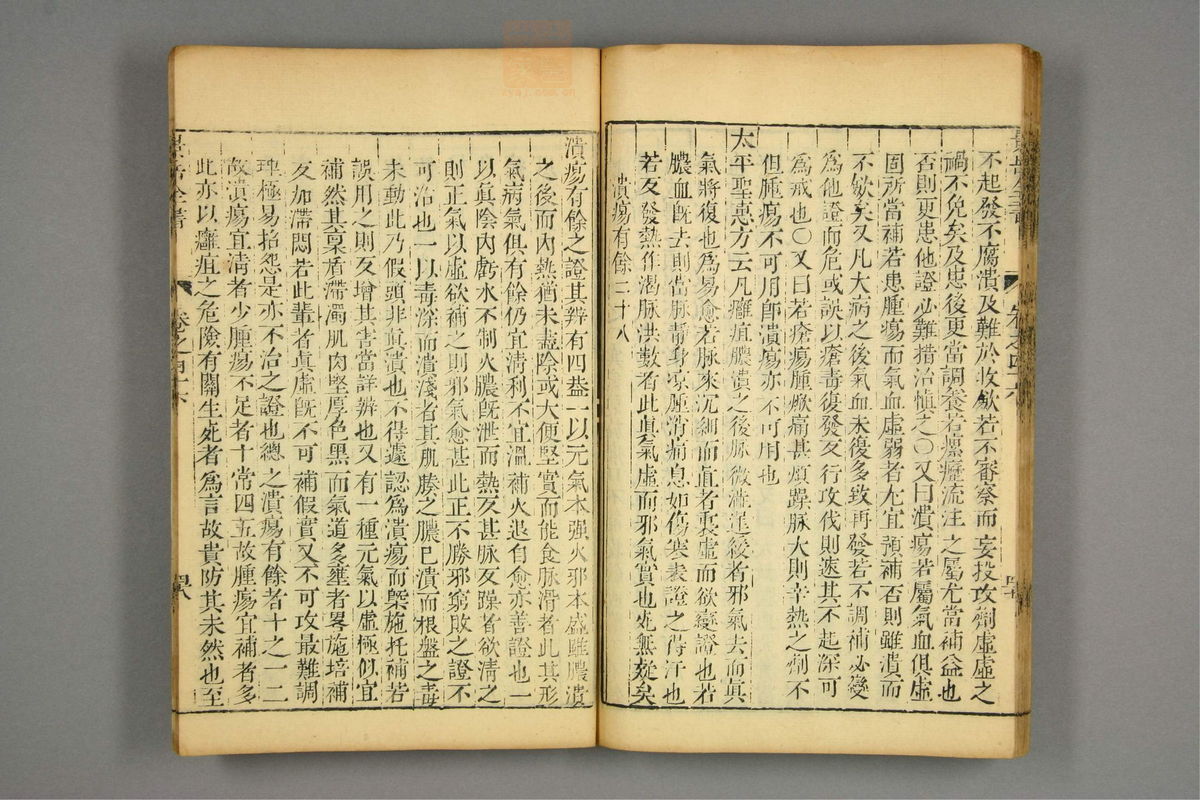 不起發不腐潰及難於收斂若不審察而妄投攻劑虛虛之
禍不免矣及患後更當調養若瘰癧流注之屬尤當補益也
否則更患他證必難措治慎之〇又曰潰瘍若屬氣血俱虛
固所當補若患腫瘍而氣血虛弱者尤宜預補否則雖潰而
不斂矣又凡大病之後氣血未復多致再發若不調補必變
為他證而危或誤以瘡毒復發反行攻伐則速其不起深可
為戒也〇又曰若瘡瘍腫焮痛甚煩躁脉大則辛熱之劑不
但腫瘍不可用卽潰瘍亦不可用也
太平聖惠方云凡癰疽膿潰之後脉微澁遲緩者邪氣去而眞
氣將復也為易愈若脉來沉細而直者裏虛而欲變證也若
膿血旣去則當脉靜身凉腫消痛息如傷寒表證之得汗也
若反發熱作渴脉洪數者此眞氣虛而邪氣實也死無疑矣
潰瘍有餘二十八
卷之四十六
四七
潰瘍有餘之證其辨有四蓋一以元氣本强火邪本盛雖膿潰
之後而內熱猶未盡除或大便堅實而能食脉滑者此其形
氣病氣俱有餘仍宜清利不宜溫補火退自愈亦善證也一
以眞陰內虧水不制火膿旣泄而熱反甚脉反躁者欲淸之
則正氣以虛欲補之則邪氣愈甚此正不勝邪窮敗之證不
可治也一以毒深而潰淺者其肌腠之膿已潰而根盤之毒
未動此乃假頭非眞潰也不得遽認爲潰瘍而槩施托補若
誤用之則反增其害當詳辨也又有一種元氣以虛極似宜
補然其禀質滯濁肌肉堅厚色黑而氣道多壅者畧施培補
反加滯悶若此輩者眞虛旣不可補假實又不可攻最難調
理極易招怨是亦不治之證也總之潰瘍有餘者十之一二
故潰瘍宜淸者少腫瘍不足者十常四五故腫瘍宜補者多
此亦以癰疽之危險有關生死者爲言故貴防其未然也至
景岳全書
卷之四十六
四八